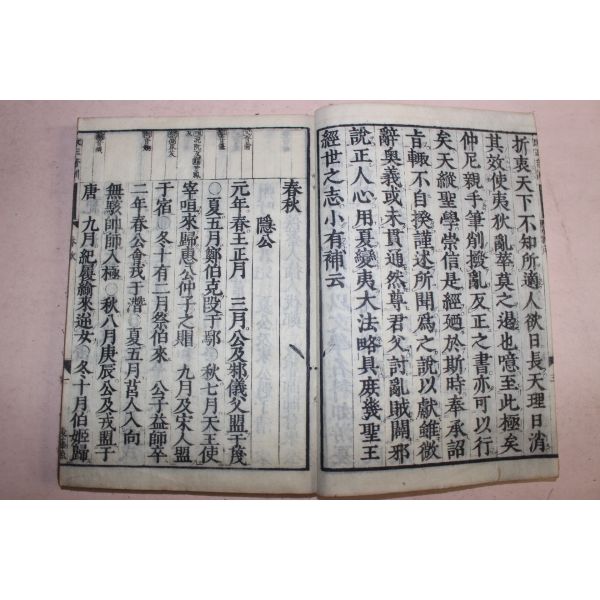 折衷天下不知所適人欲日長天理日消
其效使夷狄亂華莫之遏也噫至此極矣
仲尼親手筆削撥亂反正之書亦可以行
矣天縱聖學崇信是經廼於斯時奉承詔
旨輒不自揆謹述所聞爲之說以獻雖微
辭奧義或未貫通然尊君父討亂賊闢邪
說正人心用夏變夷大法略具庶幾聖王
經世之志小有補云
春秋
隱公
元年春王正月 三月公及邾儀父盟于蔑
○夏五月鄭伯克段于鄢○秋七月天王使
宰咺來歸惠公仲子之賵 九月及宋人盟
于宿○冬十有二月祭伯來 公子益師卒
二年春公會戎于潛○夏五月莒人入向
無駭帥師入極○秋八月庚辰公及戎盟于
唐 九月紀履緰來逆女○冬十月伯姬歸